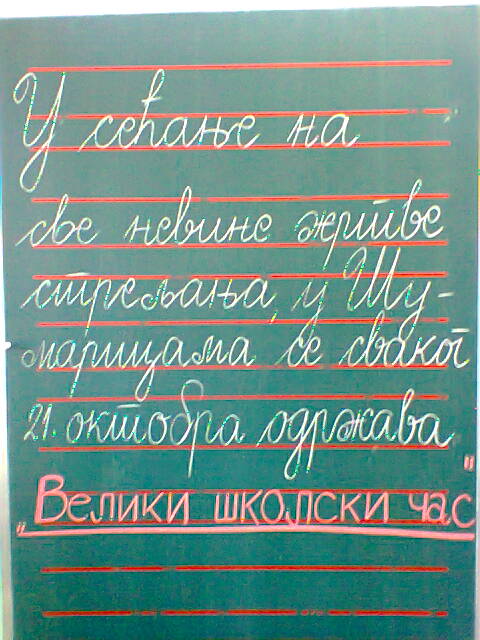 У сећање на
све невине жртве
стрељања у Шу-
марицама се сваког
21. октобра одржава
„Велики школски час"